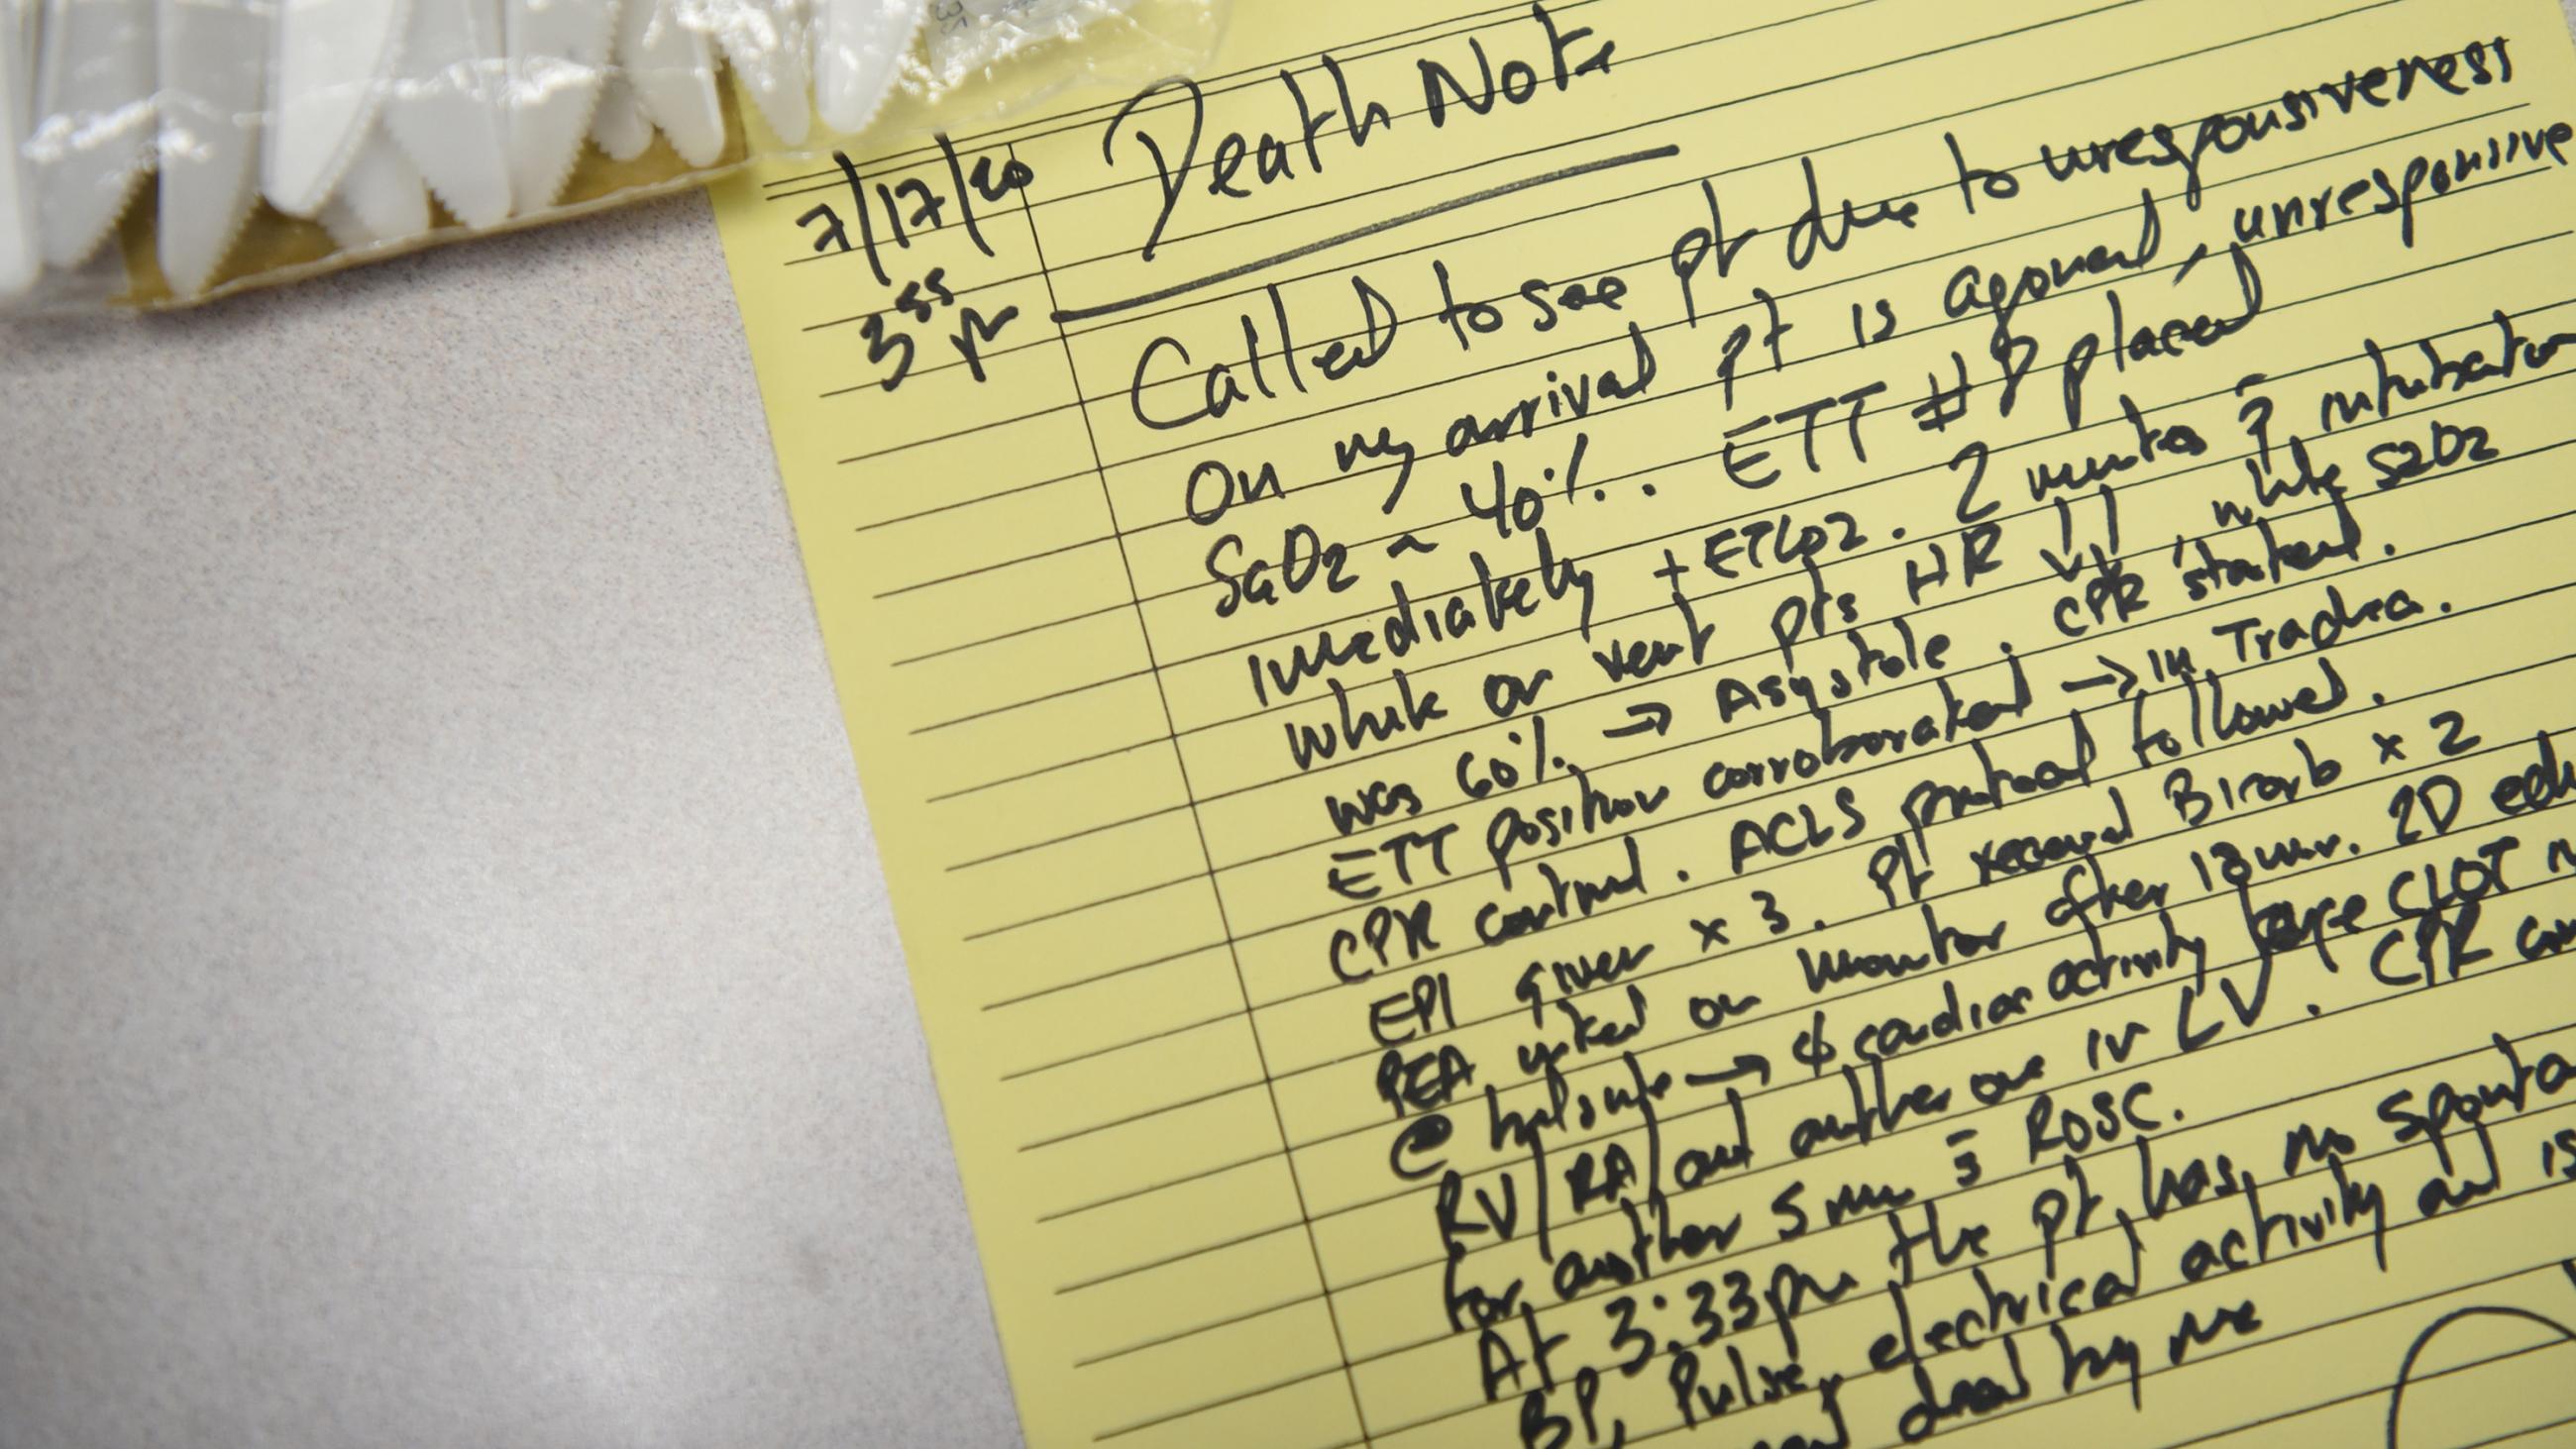 7/17/20 Death Note
3⁵⁵ p
Called to see pt due to unresponsiveness
On my arrival pt is agonal, unresponsive
SaO2 ~ 40%. ETT #8 placed
immediately + ETCO2. 2 minutes p̄ intubation
while on vent pts HR ↓↓ while SaO2
was 60% → Asystole. CPR started.
ETT position corroborated → in Trachea.
CPR continued. ACLS protocol followed.
EPI given x 3. Pt received Bicarb x 2
PEA noted on monitor after 13 min. 2D
@ bedside → ∅ cardiac activity large CLOT
RV/RA/ and another one in LV. CPR
for another 5 min s̄ ROSC.
At 3:33pm the pt has no
BP, Pulse, electrical activity and is
dead by me